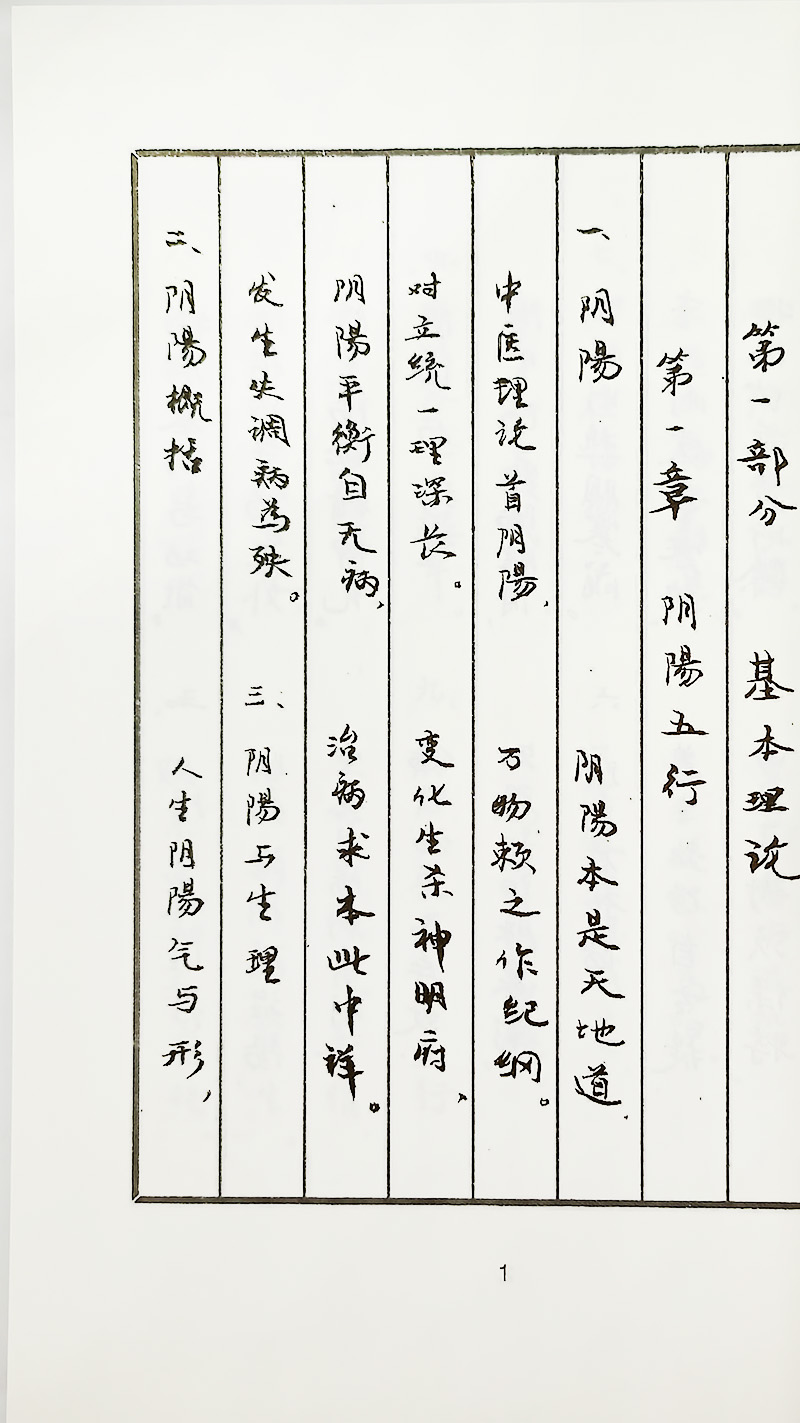 第一部分 基本理论
第一章 阴陽五行
一、阴陽 阴陽本是天地道,
中医理论首阴陽, 万物赖之作纪纲。
对立统一理深长。 变化生杀神明府、
阴陽平衡自无病, 治病求本此中祥。
发生失调病為殃。 三、阴陽与生理
二、阴陽概括 人生阴陽气与形,
1